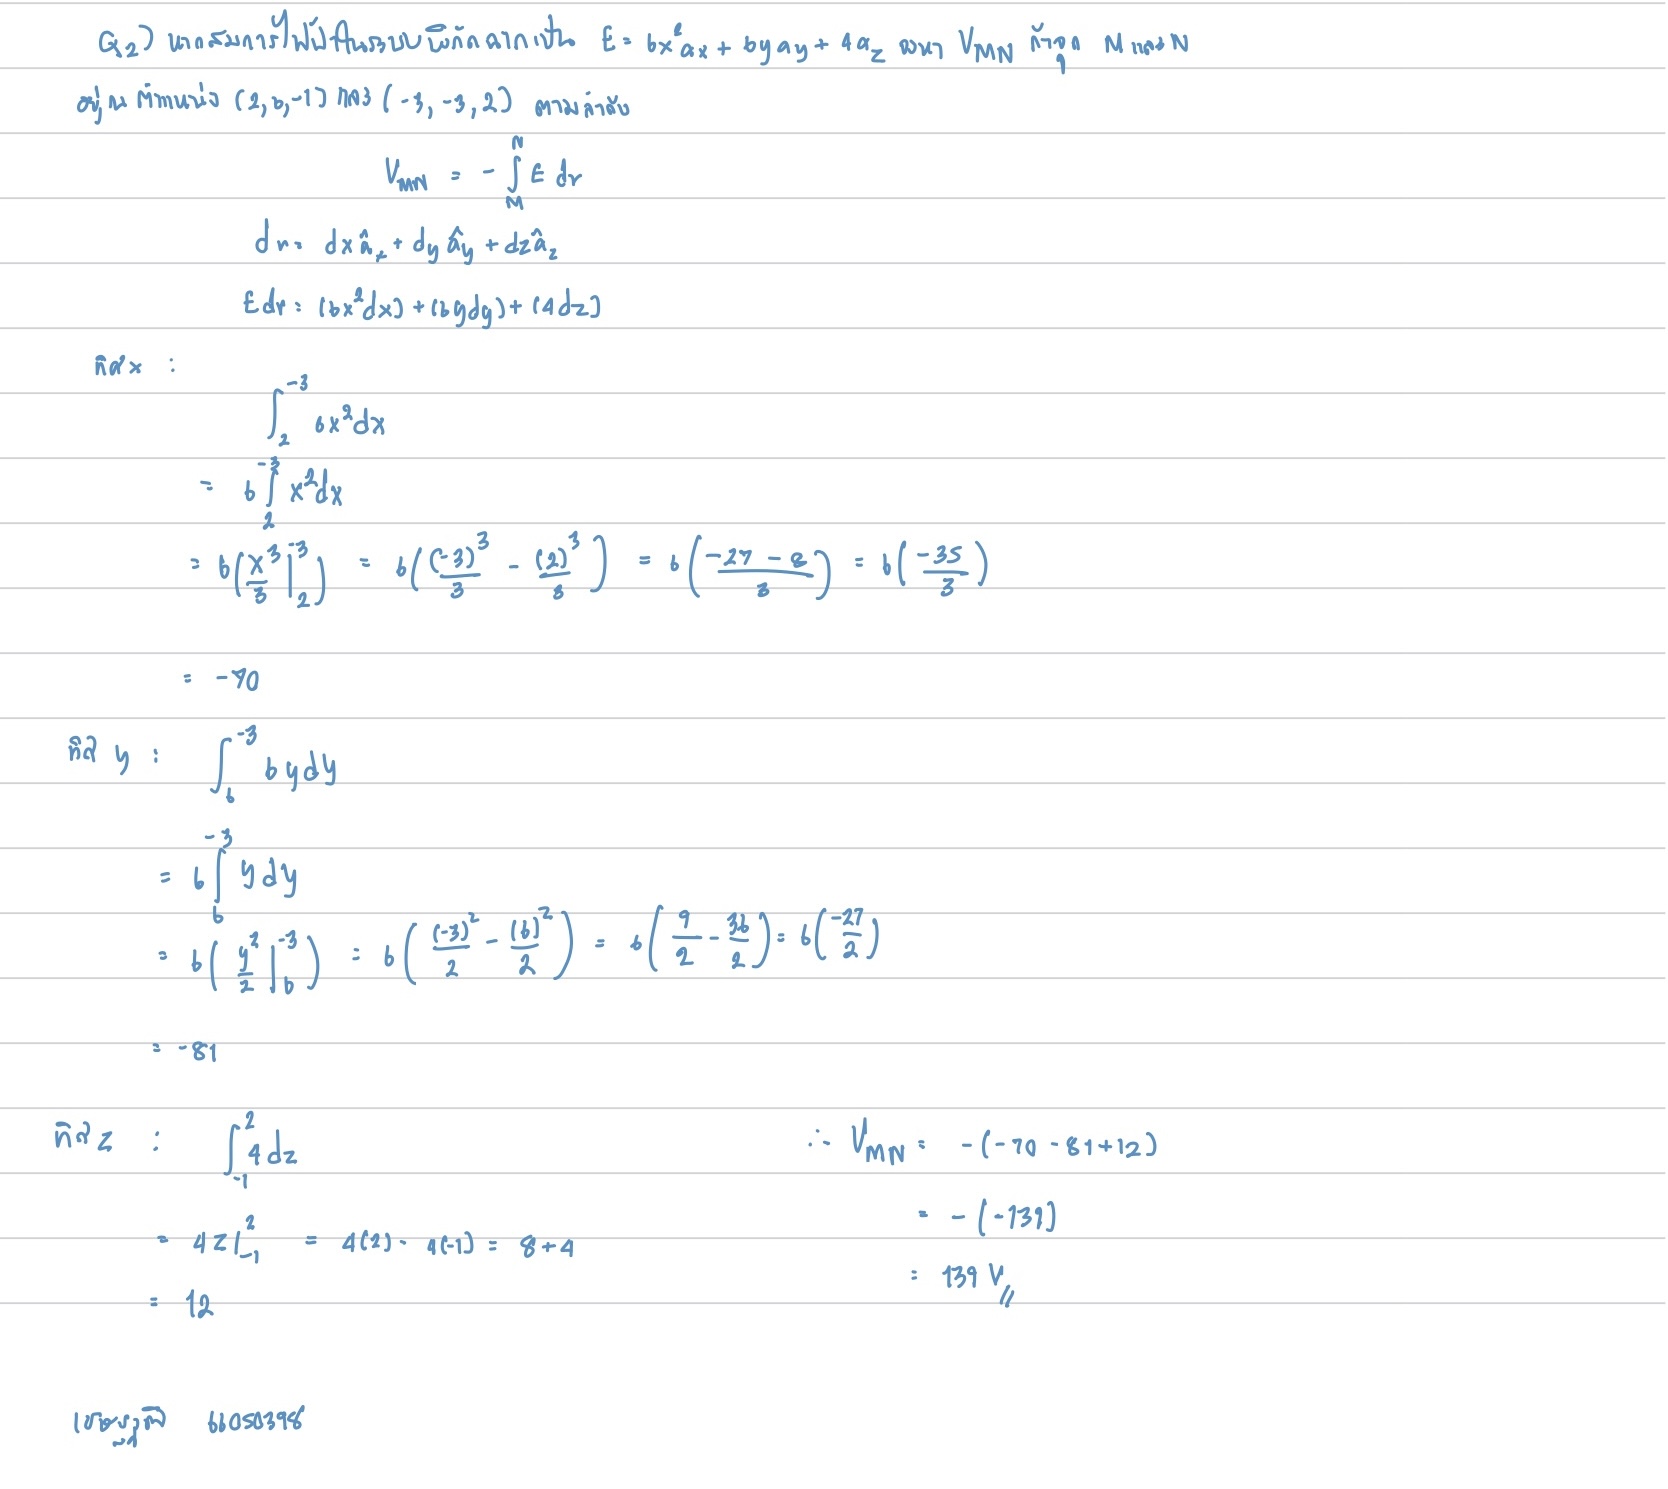 Q2) หากสมการไฟฟ้าในระบบพิกัดฉากเป็น E = 6x²ax + 6yay + 4az จงหา VMN ถ้าจุด M และ N
อยู่ ณ ตำแหน่ง (2,6,-1) และ (-3,-3,2) ตามลำดับ
V_MN = -∫_M^N E dr
dr = dx âx + dy ây + dz âz
E dr = (6x²dx) + (6ydy) + (4dz)
ทิศ x :
∫_2^-3 6x²dx
= 6 ∫_2^-3 x²dx
= 6(x³/3 |_2^-3) = 6((-3)³/3 - (2)³/3) = 6((-27 - 8)/3) = 6(-35/3)
= -70
ทิศ y : ∫_6^-3 6ydy
= 6 ∫_6^-3 ydy
= 6(y²/2 |_6^-3) = 6((-3)²/2 - (6)²/2) = 6(9/2 - 36/2) = 6(-27/2)
= -81
ทิศ z : ∫_-1^2 4dz
= 4z |_-1^2 = 4(2) - 4(-1) = 8 + 4
= 12
∴ V_MN = -(-70 - 81 + 12)
= -(-139)
= 139 V //
66050398